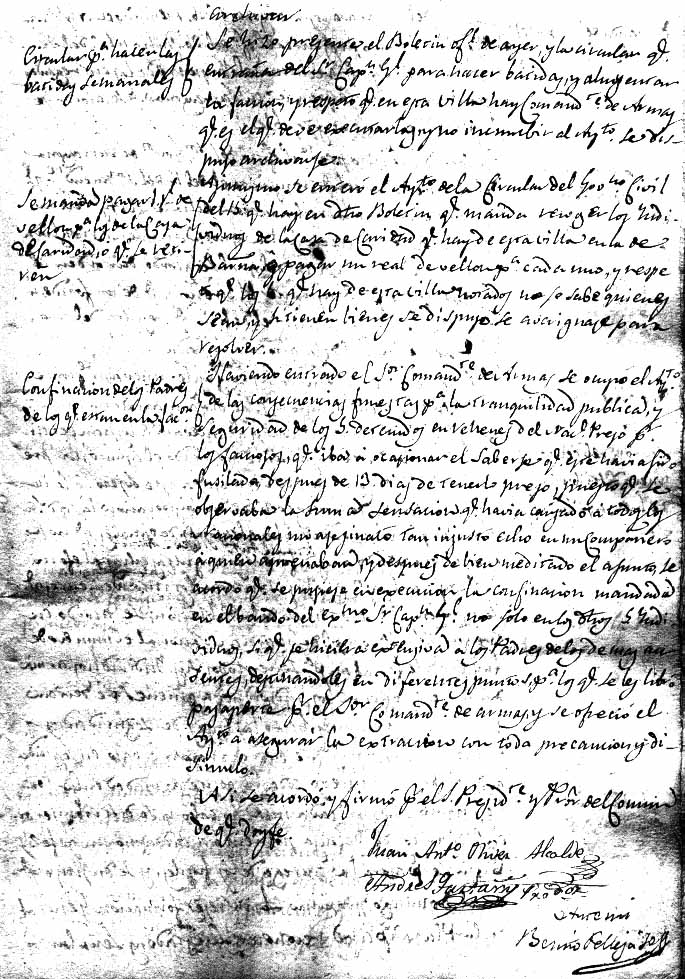 archiven.
Circular pª. hacer las
batidas semanales
Se hizo presente el Boletin ofl. de ayer, y la circular qe.
del Sr. Capn. Gl. para hacer batidas, y ahuyentar
la faccion, y respeto qe. en esta villa hay Comandte. de Armas
qe. es el qe. deve executarlas, y no incumbir al Aytto. se dis-
puso archivarse.
Se manda pagar 1 rl. de
vellon pª. los de la Casa
de Caridad, o qe. se reti-
ren
Asimismo se enteró el Aytto. de la Circular del Govno. Civil
del 13 qe. hay en dho Boletin qe. manda recoger los Indi-
viduos de la Casa de Caridad qe. hay de esta villa en la de
Barna, o pagar un real de vellon pª. cada uno, y respe-
to qe. los qe. hay de esta villa notados no se sabe quienes
sean, y si tienen bienes se dispuso se averiguase para
resolver.
Confinacion de los Padres
de los qe. estan en la facon.
Haviendo entrado el Sor. Comandte. de Armas se ocupó el Aytto.
de las consequencias funestas pª. la tranquilidad publica, y
seguridad de los 5 detenidos en rehenes del Nacl. preso pr.
los facciosos, qe. iba a ocasionar el saberse qe. este havia sido
fusilado, despues de 13 dias de tenerlo preso, puesto qe. se
observaba la suma sensacion qe. havia causado a todos los
Nacionales un asesinato tan injusto echo en un Compañero
a quien apreciaban, y despues de bien meditado el asunto, se
acordó qe. se pusiese en execucion la confinacion mandada
en el bando del exmo. Sr. Capn. Gl. no solo en los dhos 5 Indi-
viduos, si qe. se hiciera extensiva a los Padres de los demas au-
sentes destinandoles en diferentes puntos pª. los qe. se les libró
pasaporte pr. el Sor. Comandte. de armas, y se ofreció el
Aytto. a asegurar la extraccion con toda precaucion y di-
simulo.
Asi se acordó, y firmó pr. el S. Presidte. y Pror. del Comun
de qe. Doy fe.
Juan Anto. Oliver Alcalde
Andres
Ante mi
Benito Pelleja